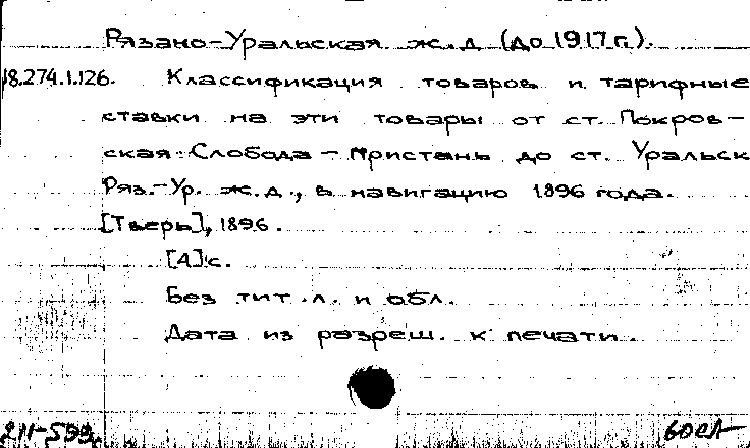 Рязано-Уральская ж.д. (до 1917 г.).
18.274.1.126. Классификация товаров и тарифные
ставки на эти товары от ст. Покров-
ская-Слобода-Пристань до ст. Уральск
Ряз.-Ур. ж.д., в навигацию 1896 года.
[Тверь], 1896.
[4] с.
Без тит. л. и обл.
Дата из разреш. к печати.